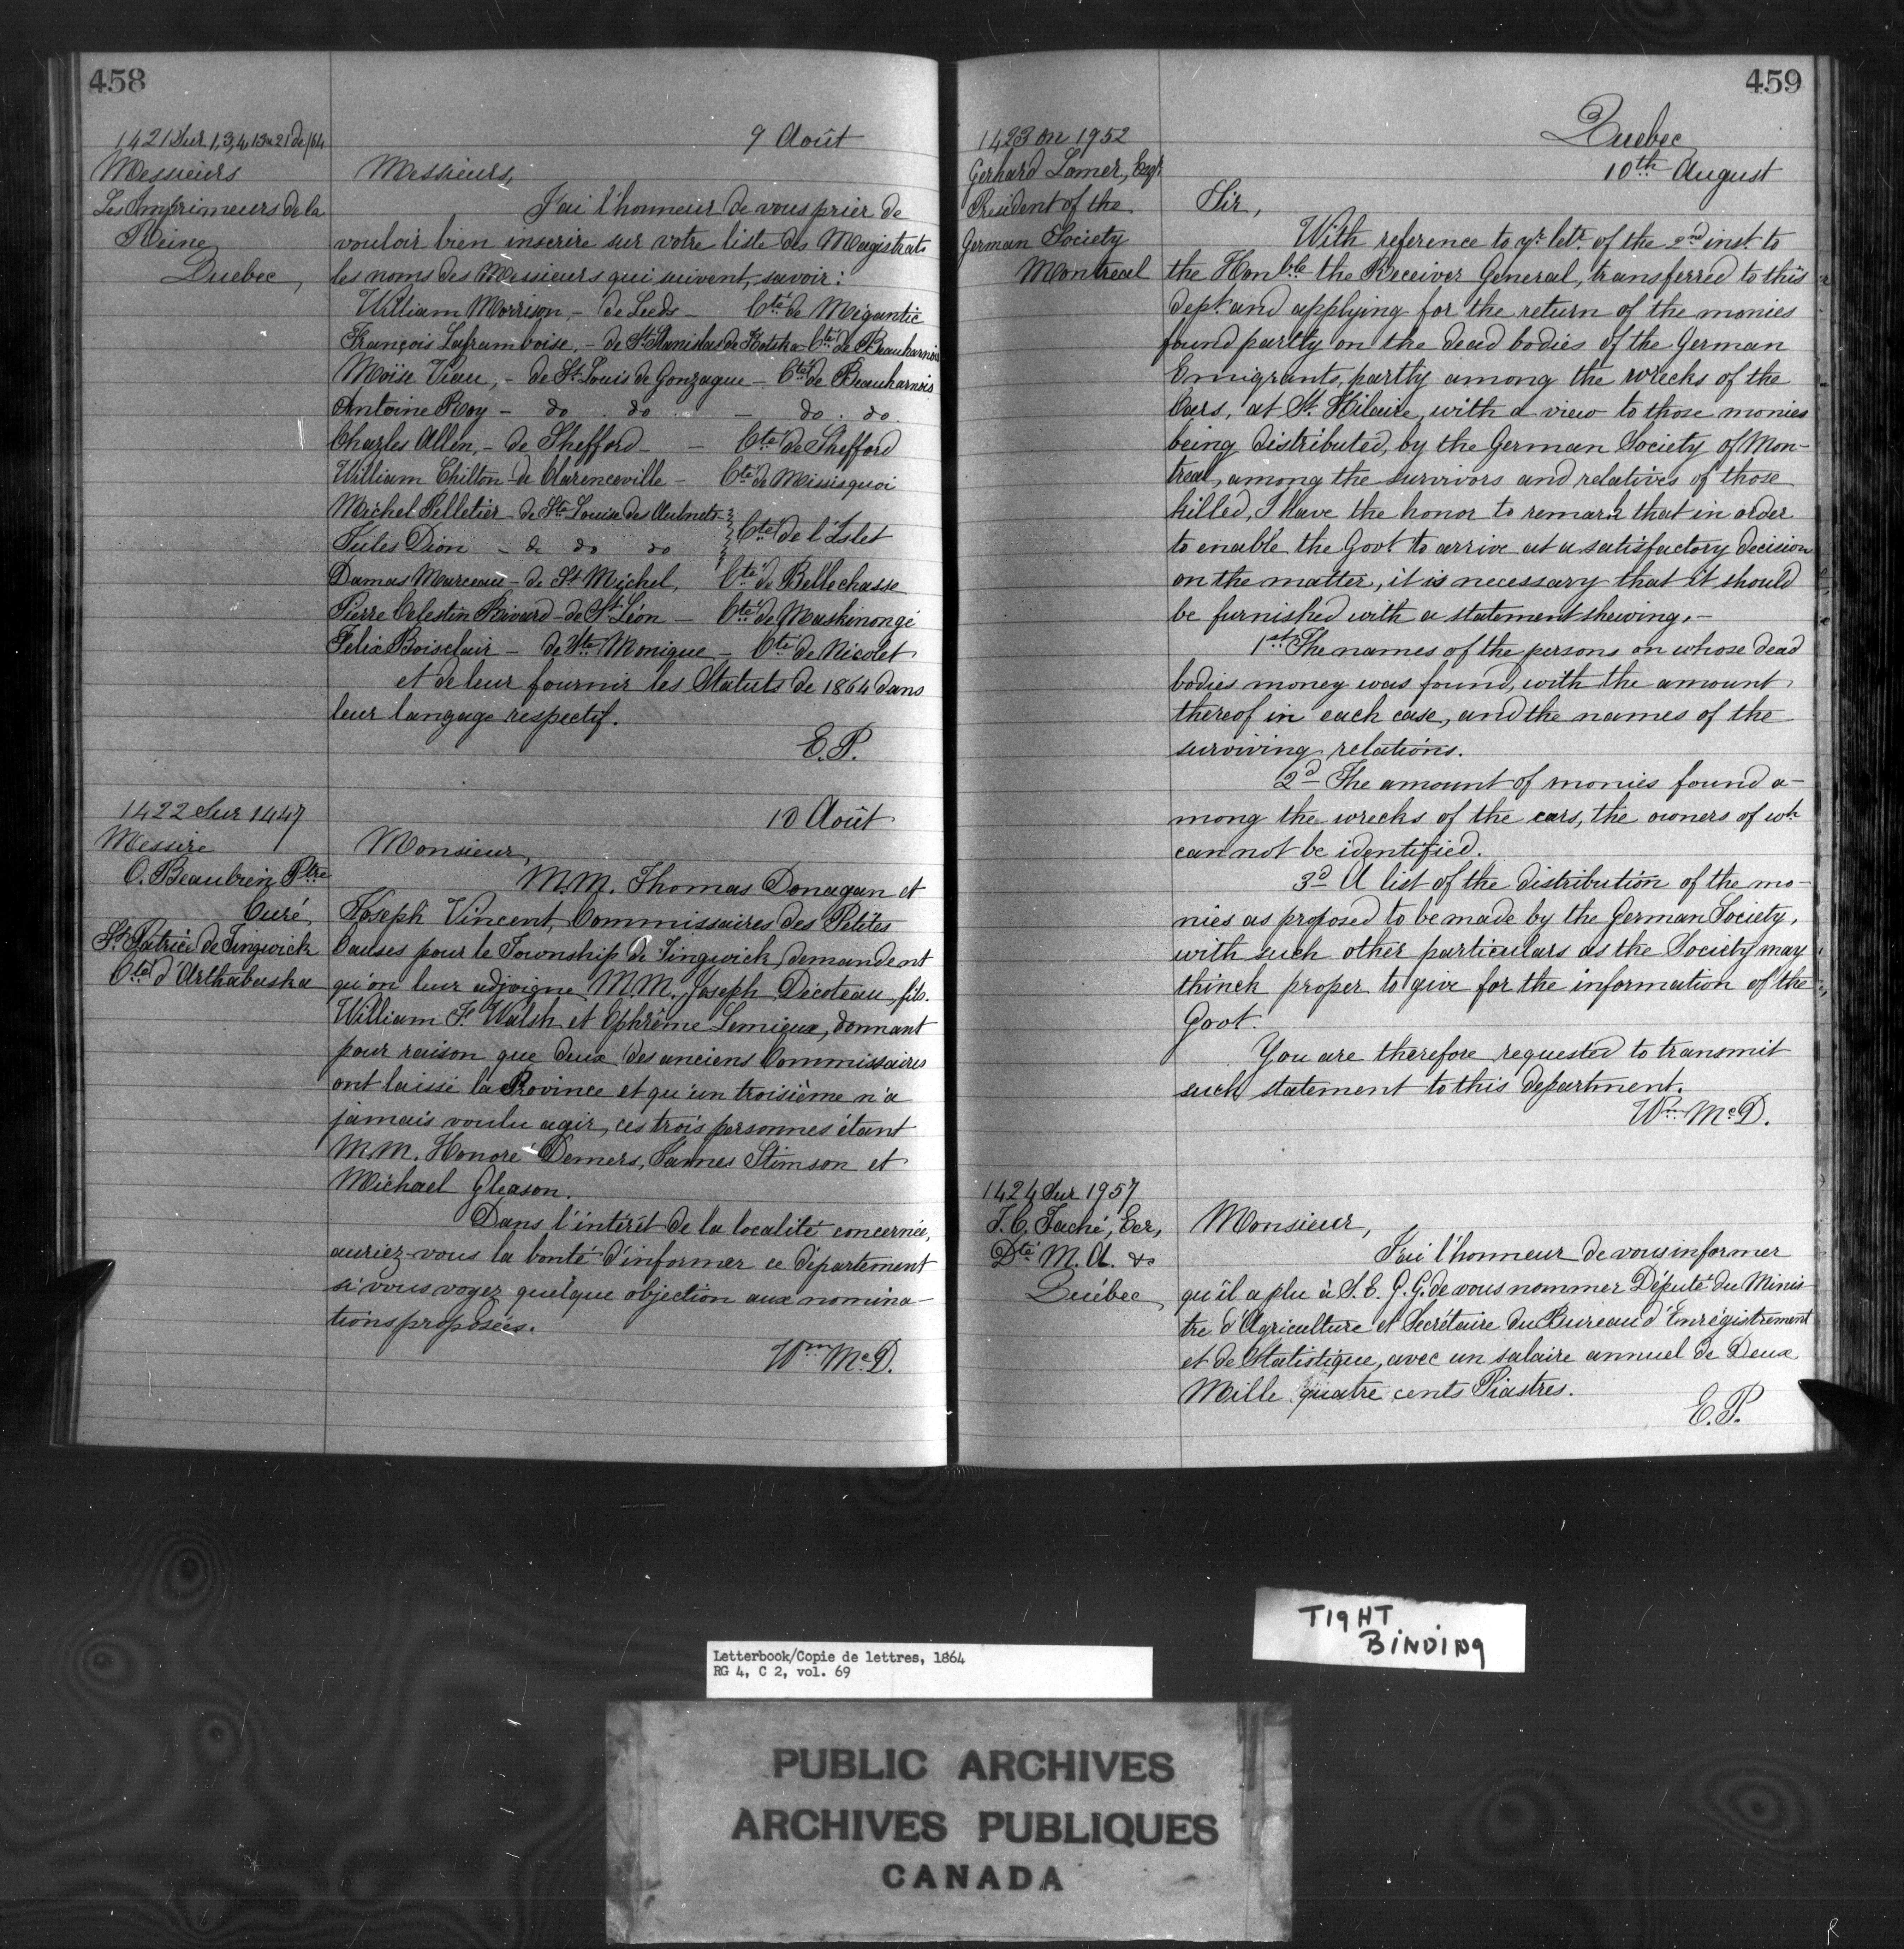 458
1421 Sur 1,3,4,13 a 21 de /64
Messieurs
Les Imprimeurs de la
Reine
Quebec,
9 Août
Messieurs,
J'ai l'honneur de vous prier de
vouloir bien inscrire sur votre liste des Magistrats
les noms des Messieurs qui suivent, savoir:
William Morrison, - de Leeds - Cté de Mégantic
François Laframboise, - de St Stanislas de Kotska - Cté de Beauharnois
Moïse Viau, - de St Louis de Gonzague - Cté de Beauharnois
Antoine Roy - do . do - do . do.
Charles Allen, - de Shefford - - Cté de Shefford
William Chilton - de Clarenceville - Cté de Missisquoi
Michel Pelletier de Ste Louise des Aulnets
Jules Dion - de do do Cté de l'Islet
Damas Marceau - de St Michel, Cté de Bellechasse
Pierre Celestin Rivard - de St Léon - Cté de Maskinongé
Felix Boisclair - de Ste Monique - Cté de Nicolet
et de leur fournir les Statuts de 1864 dans
leur langage respectif.
E.P.
1422 Sur 1447
Messire
O. Beaubien Ptre
Curé
St Patrice de Tingwick
Cté d'Arthabaska
10 Août
Monsieur,
M.M. Thomas Donagan et
Joseph Vincent, Commissaires des Petites
Causes pour le Township de Tingwick, demandent
qu'on leur adjoigne M.M. Joseph Décoteau, fils.
William F. Walsh et Ephrême Lemieux, donnant
pour raison que deux des anciens Commissaires
ont laissé la Province et qu'un troisième n'a
jamais voulu agir, ces trois personnes étant
M.M. Honoré Demers, James Stimson et
Michael Gleason.
Dans l'intérêt de la localité concernée,
auriez-vous la bonté d'informer ce département
si vous voyez quelque objection aux nomina-
tions proposées.
Wm McD.
459
1423 on 1952
Gerhard Lomer, Esqr
President of the
German Society
Montreal
Quebec
10th August
Sir,
With reference to yr letr of the 2nd inst. to
the Honble the Receiver General, transferred to this
dept. and applying for the return of the monies
found partly on the dead bodies of the German
Emigrants, partly among the wrecks of the
Cars, at St. Hilaire, with a view to those monies
being distributed, by the German Society of Mon-
treal, among the survivors and relatives of those
killed, I have the honor to remark that in order
to enable the Govt to arrive at a satisfactory decision
on the matter, it is necessary that it should
be furnished with a statement shewing, -
1st The names of the persons on whose dead
bodies money was found, with the amount
thereof in each case, and the names of the
surviving relations.
2d The amount of monies found a-
mong the wrecks of the cars, the owners of wh
cannot be identified.
3d A list of the distribution of the mo-
nies as proposed to be made by the German Society,
with such other particulars as the Society may
thinck proper to give for the information of the
Govt.
You are therefore requested to transmit
such statement to this department.
Wm McD.
1424 Sur 1957
J.C. Taché, Ecr,
Dté M.A. &c
Québec
Monsieur,
J'ai l'honneur de vous informer
qu'il a plu à S.E.G.G. de vous nommer Député du Minis
tre d'Agriculture et Secrétaire du Bureau d'Enrégistrement
et de Statistique, avec un salaire annuel de Deux
Mille quatre cents Piastres.
E.P.
TIGHT
BINDING
Letterbook/Copie de lettres, 1864
RG 4, C 2, vol. 69
PUBLIC ARCHIVES
ARCHIVES PUBLIQUES
CANADA